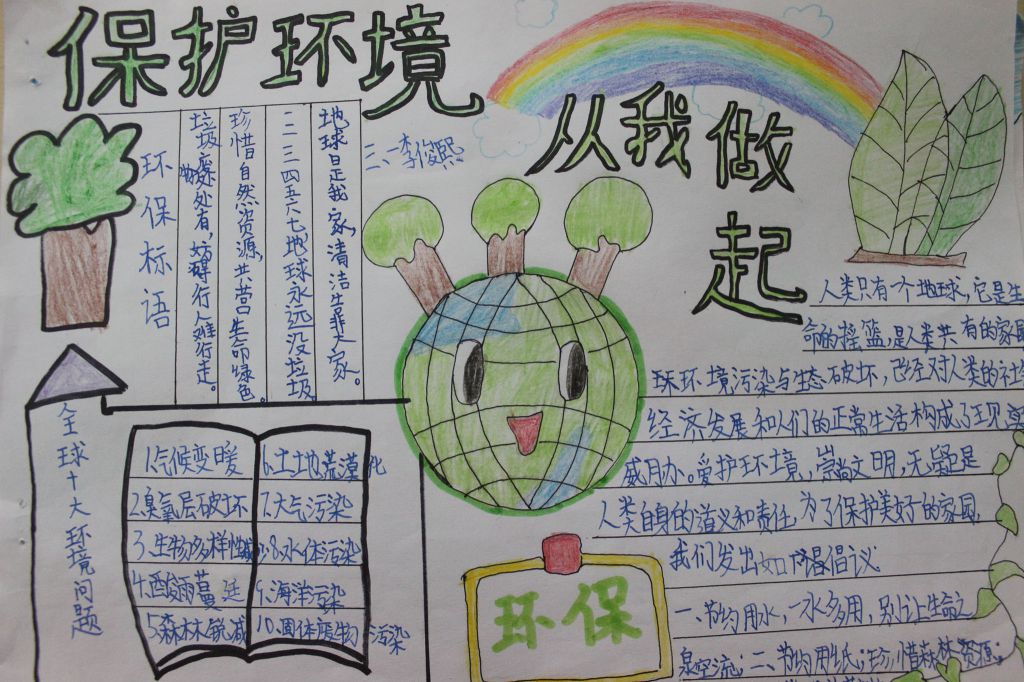 保护环境
从我做起
三、一李俊熙
环保标语
垃圾废物处有,妨碍行人难行走。
珍惜自然资源,共营生命绿色。
一二三四五六七地球永远没垃圾
地球是我家,清洁靠大家。
全球十大环境问题
1.气候变暖
2.臭氧层破坏
3.生物多样性减
4.酸雨蔓延
5.森林锐减
6.土地荒漠化
7.大气污染
8.水体污染
9.海洋污染
10.固体废物污染
环保
人类只有一个地球,它是生
命的摇篮,是人类共有的家园
环环境污染与生态破坏,已经对人类的社会
经济发展和人们的正常生活构成了现实
威胁。爱护环境,崇尚文明,无疑是
人类自身的道义和责任.为了保护美好的家园,
我们发出如下倡议
一、节约用水,一水多用,别让生命之
泉空流;二、节约用纸;珍惜森林资源;